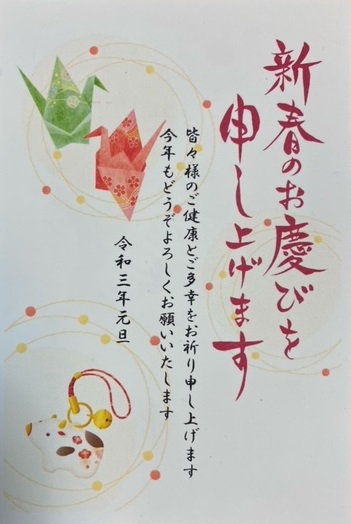 新春のお慶びを
申し上げます
皆々様のご健康とご多幸をお祈り申し上げます
今年もどうぞよろしくお願いいたします
令和三年元旦